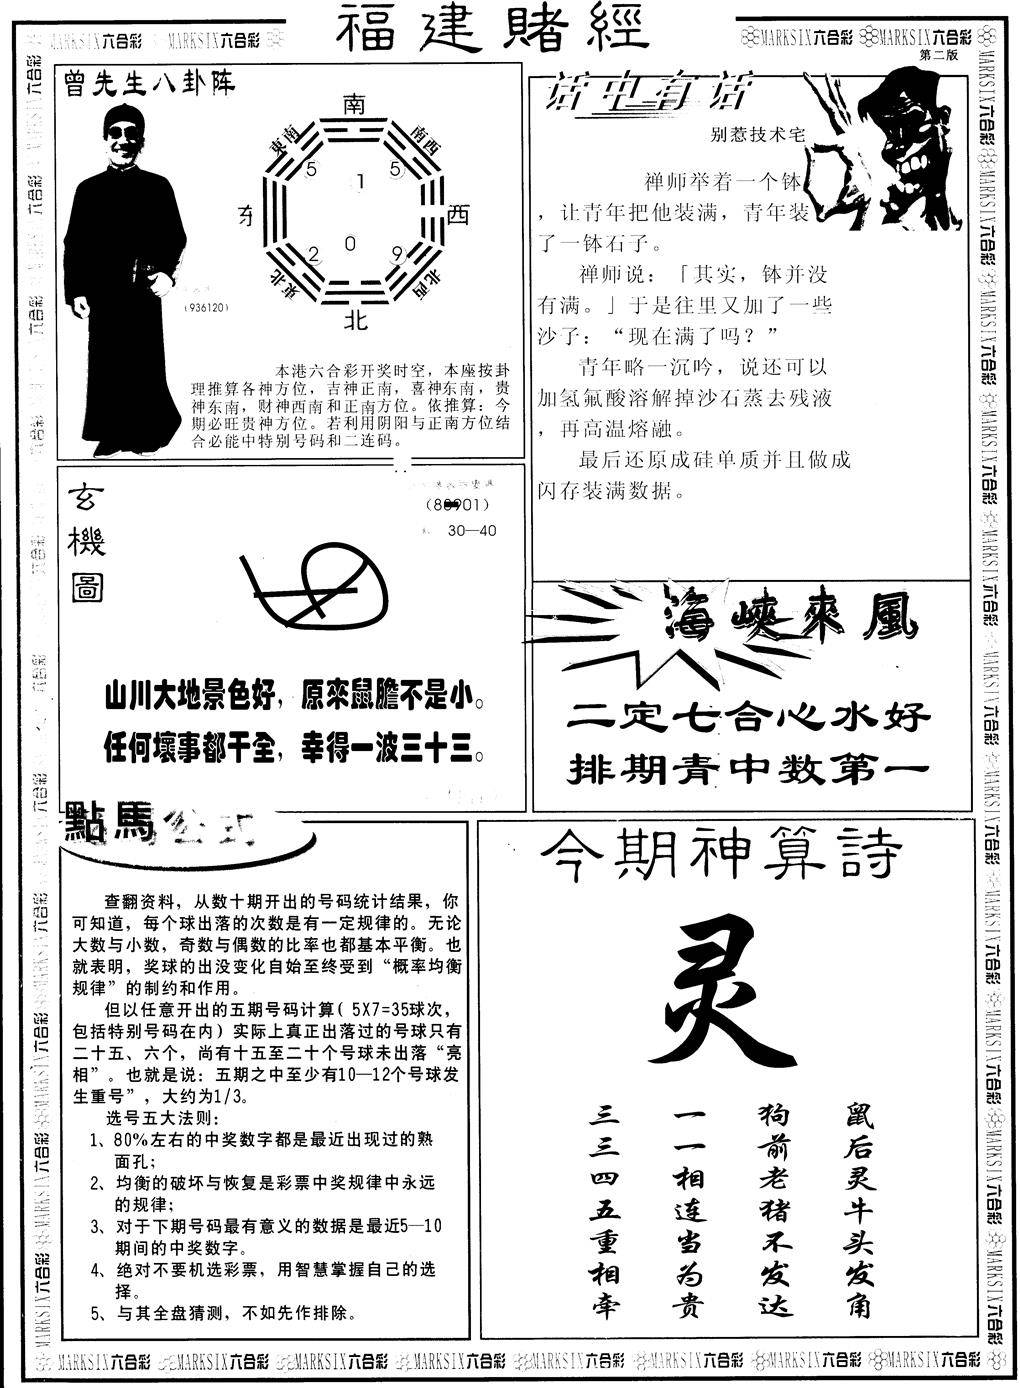 福建賭經
MARKSIX六合彩 MARKSIX六合彩
MARKSIX六合彩 MARKSIX六合彩
第二版
曾先生八卦阵
南
東南
南西
5
1
5
东
西
2
0
9
東北
北西
北
(936120)
本港六合彩开奖时空，本座按卦
理推算各神方位，吉神正南，喜神东南，贵
神东南，财神西南和正南方位。依推算：今
期必旺贵神方位。若利用阴阳与正南方位结
合必能中特别号码和二连码。
话中有话
别惹技术宅
禅师举着一个钵
，让青年把他装满，青年装
了一钵石子。
禅师说：「其实，钵并没
有满。」于是往里又加了一些
沙子：“现在满了吗？”
青年略一沉吟，说还可以
加氢氟酸溶解掉沙石蒸去残液
，再高温熔融。
最后还原成硅单质并且做成
闪存装满数据。
玄機圖
30—40
山川大地景色好，原來鼠膽不是小。
任何壞事都干全，幸得一波三十三。
海峽來風
二定七合心水好
排期青中数第一
點馬公式
查翻资料，从数十期开出的号码统计结果，你
可知道，每个球出落的次数是有一定规律的。无论
大数与小数，奇数与偶数的比率也都基本平衡。也
就表明，奖球的出没变化自始至终受到“概率均衡
规律”的制约和作用。
但以任意开出的五期号码计算( 5X7=35球次，
包括特别号码在内）实际上真正出落过的号球只有
二十五、六个，尚有十五至二十个号球未出落“亮
相”。也就是说：五期之中至少有10—12个号球发
生重号”，大约为1/3。
选号五大法则：
1、80%左右的中奖数字都是最近出现过的熟
面孔；
2、均衡的破坏与恢复是彩票中奖规律中永远
的规律；
3、对于下期号码最有意义的数据是最近5—10
期间的中奖数字。
4、绝对不要机选彩票，用智慧掌握自己的选
择。
5、与其全盘猜测，不如先作排除。
今期神算詩
灵
鼠后灵牛头发角
狗前老猪不发达
一一相连当为贵
三三四五重相牵
MARKSIX六合彩 MARKSIX六合彩 MARKSIX六合彩 MARKSIX六合彩 MARKSIX六合彩 MARKSIX六合彩 MARKSIX六合彩 MARKSIX六合彩